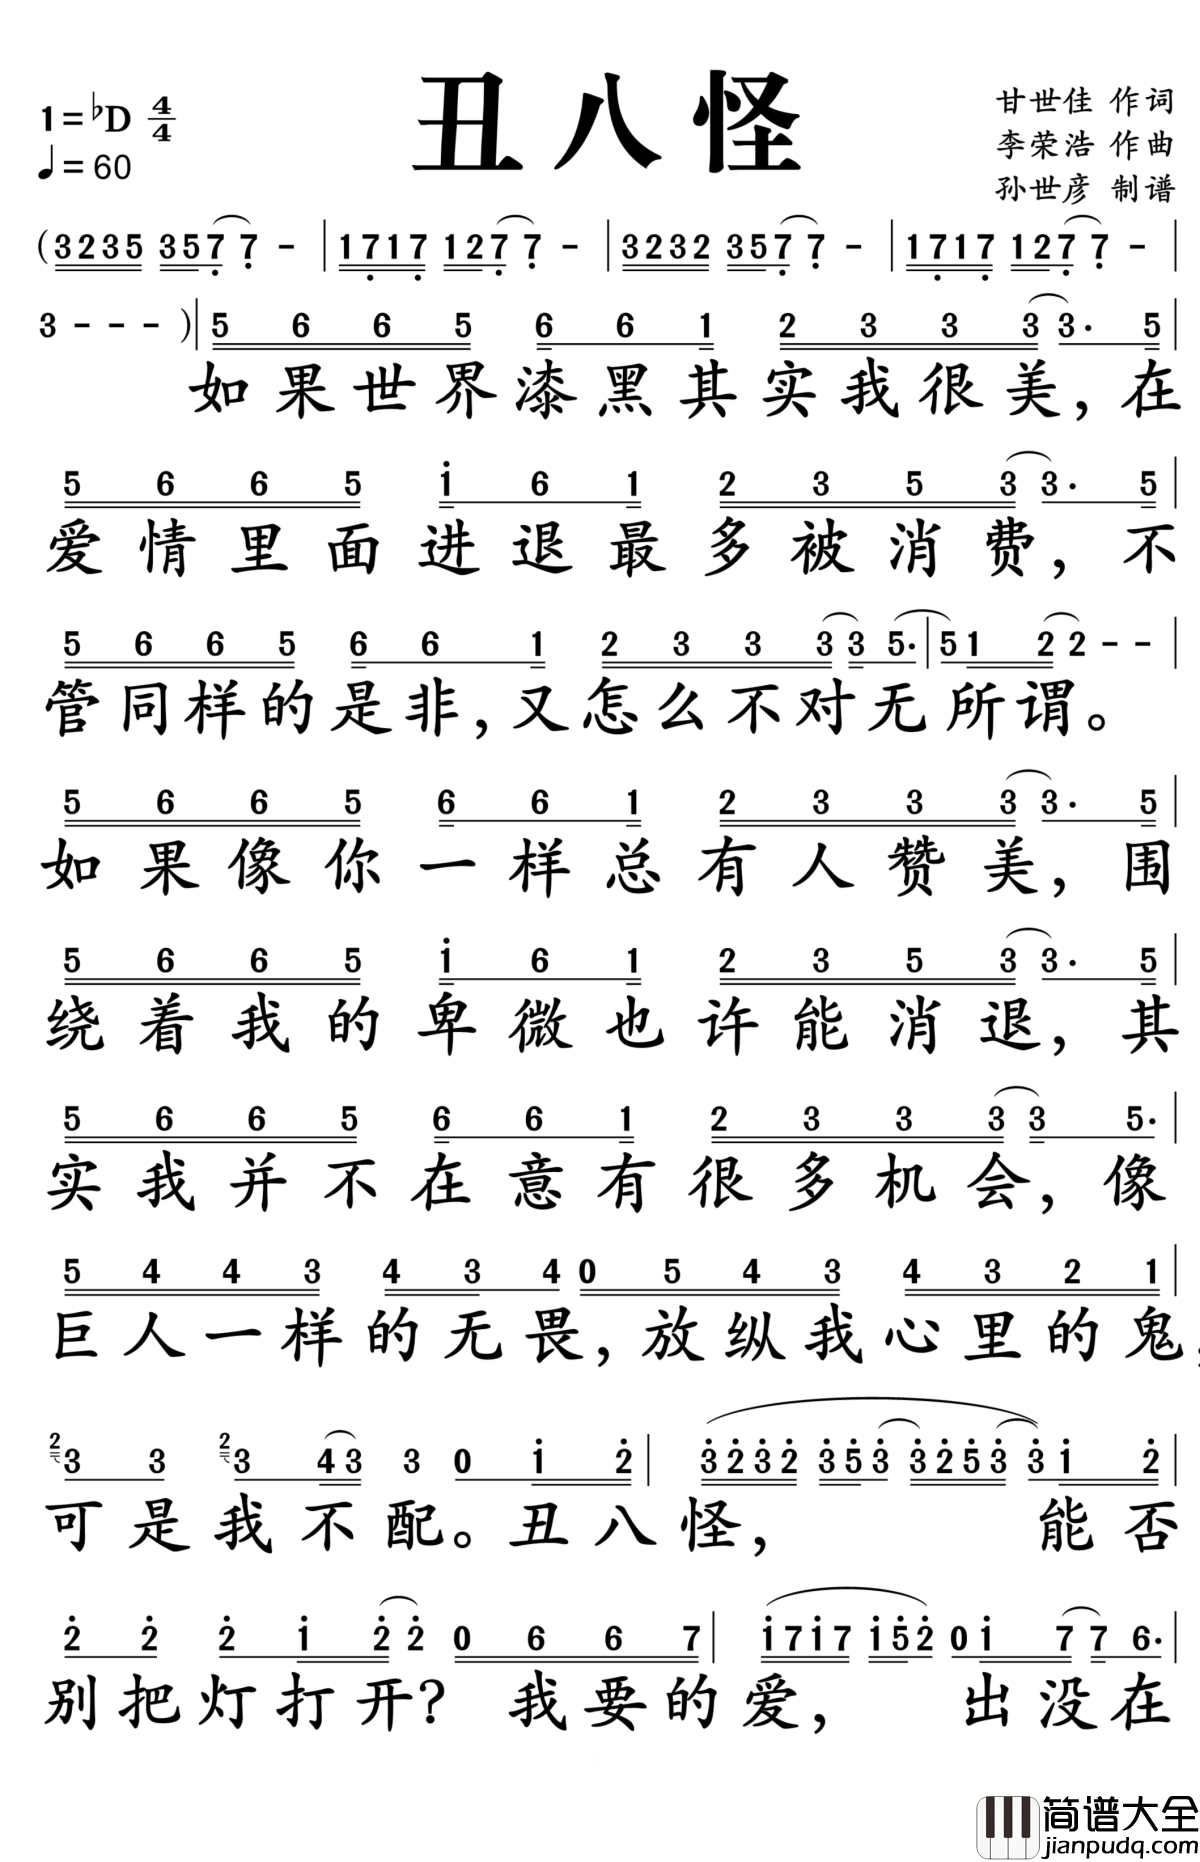 丑八怪
1=♭D 4/4
♩=60
甘世佳 作词
李荣浩 作曲
孙世彦 制谱
(3235 357̣ 7̣ - | 17̣17̣ 127̣ 7̣ - | 3232 357̣ 7̣ - | 17̣17̣ 127̣ 7̣ - |
3 - - - )| 5 6 6 5 6 6 1 2 3 3 3 3· 5 |
如果世界漆黑其实我很美，在
5 6 6 5 1̇ 6 1 2 3 5 3 3· 5 |
爱情里面进退最多被消费，不
5 6 6 5 6 6 1 2 3 3 3 3 5· | 5 1 2 2 - - |
管同样的是非，又怎么不对无所谓。
5 6 6 5 6 6 1 2 3 3 3 3· 5 |
如果像你一样总有人赞美，围
5 6 6 5 1̇ 6 1 2 3 5 3 3· 5 |
绕着我的卑微也许能消退，其
5 6 6 5 6 6 1 2 3 3 3 3 5·
实我并不在意有很多机会，像
5 4 4 3 4 3 4 0 5 4 3 4 3 2 1 |
巨人一样的无畏，放纵我心里的鬼，
2 3 3 2 3 4 3 3 0 1̇ 2̇ | 3̇2̇3̇2̇ 3̇5̇3̇ 3̇2̇5̇3̇ 3̇ 1̇ 2̇
可是我不配。丑八怪，能否
2̇ 2̇ 2̇ 1̇ 2̇ 2̇ 0 6 6 7 | 1̇71̇7 1̇5̇2̇ 0 1̇ 7 7 6·
别把灯打开？我要的爱，出没在
简谱大全
jianpudq.com